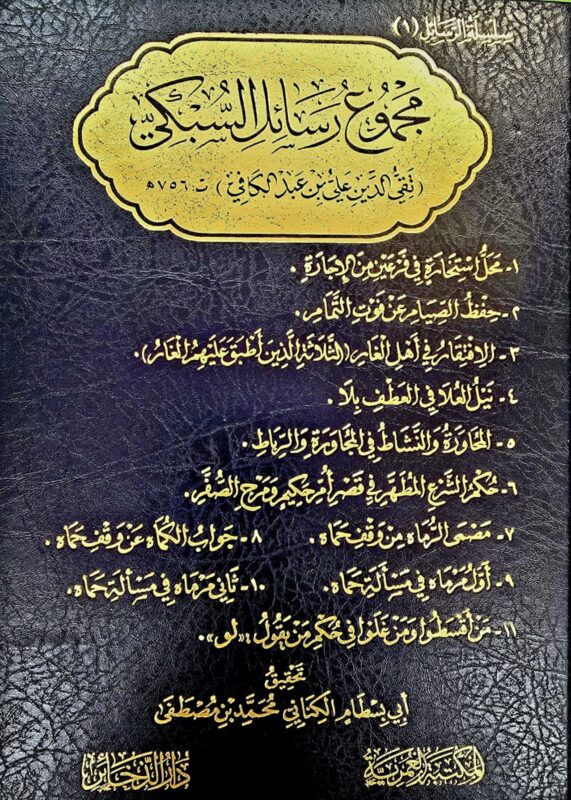 سلسلة الرسائل (١)
مجموع رسائل السبكي
(تقي الدين علي بن عبد الكافي) ت ٧٥٦ه
١- محل استخارة في فرعين من الإجارة.
٢- حفظ الصيام عن فوت التمام.
٣- الافتقار في أهل الغار (الثلاثة الذين أطبق عليهم الغار).
٤- نيل العلا في العطف بلا.
٥- المحاورة والنشاط في المجاورة والرباط.
٦- حكم الشرع المطهر في قصر أم حكيم ومرج الصفر.
٧- مصمى الرماه من وقف حماه. ٨- جواب الكماه عن وقف حماه.
٩- أول مرماه في مسألة حماه. ١٠- ثاني مرماه في مسألة حماه.
١١- من أقسطوا ومن غلوا في حكم من يقول: «لو».
تحقيق
أبي بسطام الكناني محمد بن مصطفى
المكتبة العمرية دار الذخائر